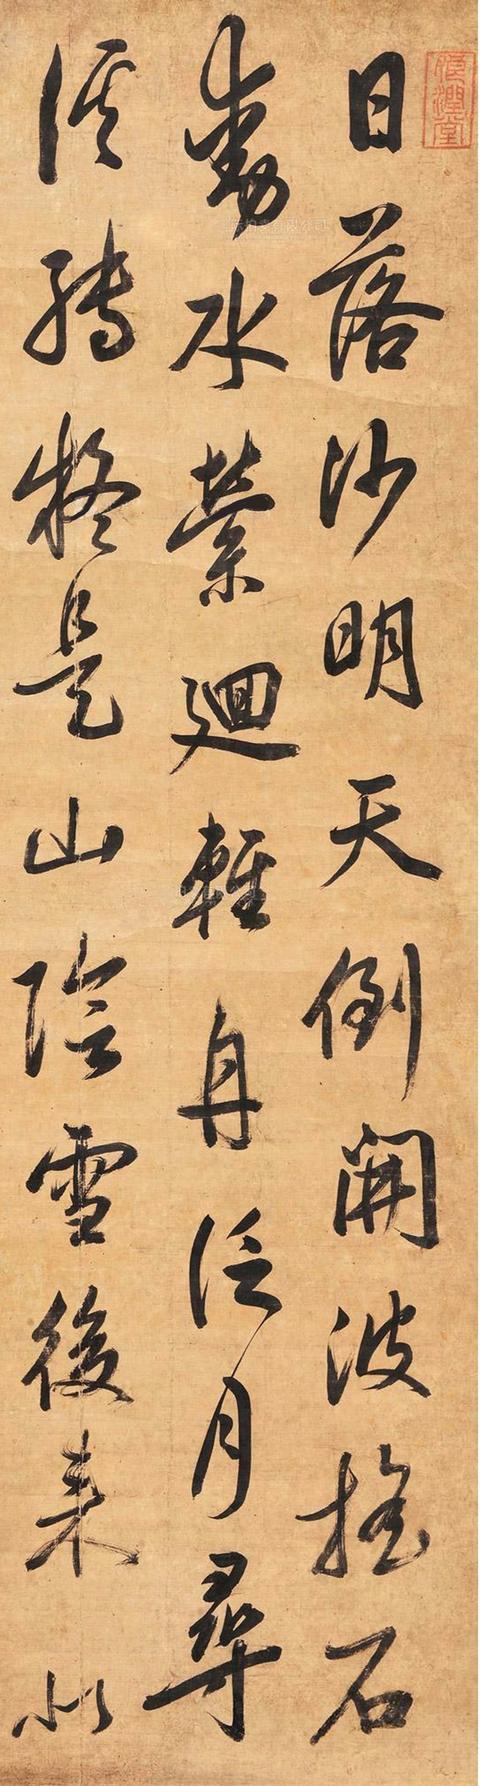 日落沙明天倒開波搖石
動水縈迴輕舟泛月尋
溪轉疑是山陰雪後來